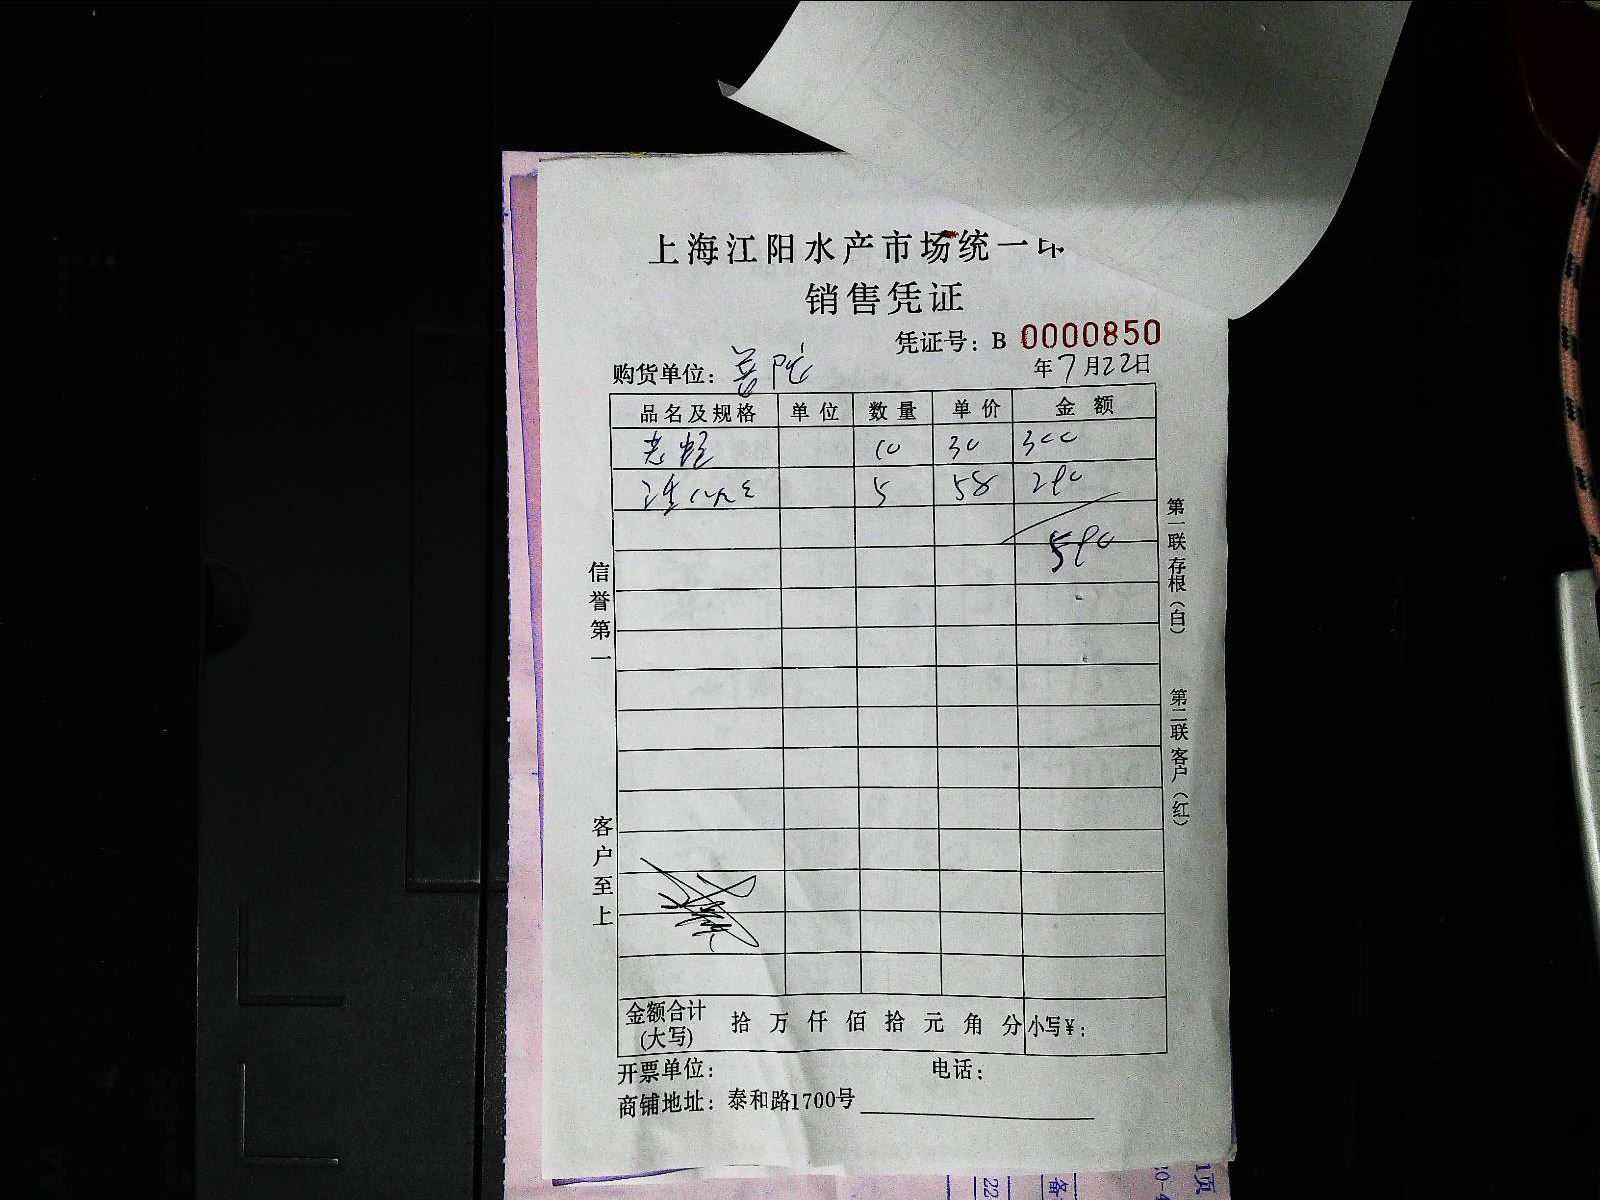 上海江阳水产市场统一印
销售凭证
凭证号：B 0000850
购货单位：普陀 年7月22日
品名及规格 单位 数量 单价 金额
10 30 300
5 58 290
590
信誉第一
客户至上
第一联存根（白）
第二联客户（红）
金额合计(大写) 拾 万 仟 佰 拾 元 角 分 小写￥：
开票单位： 电话：
商铺地址：泰和路1700号
22
备
1页